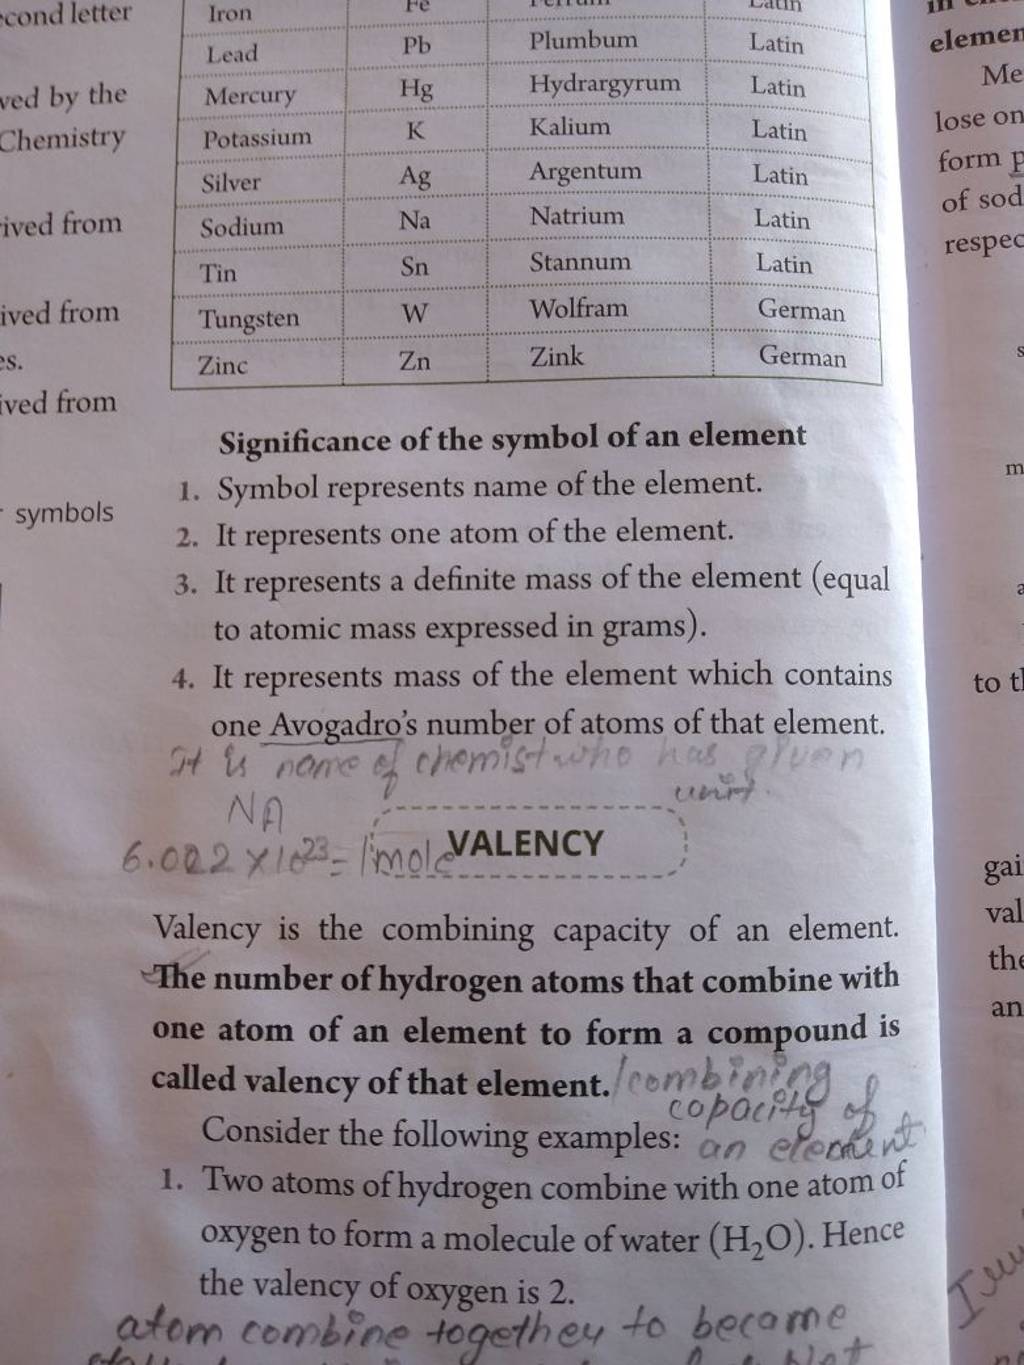 econd letter
ved by the
Chemistry
rived from
ived from
es.
ived from
symbols
Iron Fe Ferrum Latin
Lead Pb Plumbum Latin
Mercury Hg Hydrargyrum Latin
Potassium K Kalium Latin
Silver Ag Argentum Latin
Sodium Na Natrium Latin
Tin Sn Stannum Latin
Tungsten W Wolfram German
Zinc Zn Zink German
Significance of the symbol of an element
1. Symbol represents name of the element.
2. It represents one atom of the element.
3. It represents a definite mass of the element (equal
to atomic mass expressed in grams).
4. It represents mass of the element which contains
one Avogadro's number of atoms of that element.
It is name of chemist who has given
unit.
NA
6.022 × 10²³ = 1mole
VALENCY
Valency is the combining capacity of an element.
The number of hydrogen atoms that combine with
one atom of an element to form a compound is
called valency of that element. /combining
capacity of
Consider the following examples: an element
1. Two atoms of hydrogen combine with one atom of
oxygen to form a molecule of water (H₂O). Hence
the valency of oxygen is 2.
atom combine togethey to became
elemen
Me
lose on
form p
of sod
respec
to th
gai
val
the
an